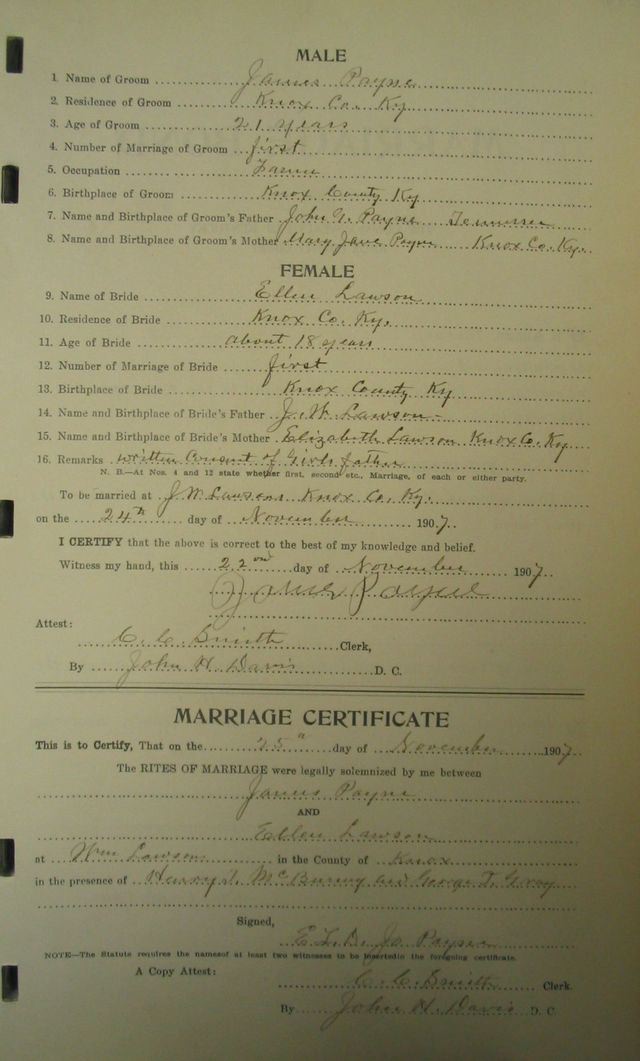 MALE
1 Name of Groom James Payne
2. Residence of Groom Knox Co. Ky
3. Age of Groom 21 years
4. Number of Marriage of Groom first
5. Occupation
6. Birthplace of Groom Knox County Ky
7. Name and Birthplace of Groom's Father John G. Payne Tennessee
8. Name and Birthplace of Groom's Mother Mary Jane Payne Knox Co. Ky.
FEMALE
9. Name of Bride Ellen Lawson
10. Residence of Bride Knox Co. Ky.
11. Age of Bride about 18 years
12. Number of Marriage of Bride first
13. Birthplace of Bride Knox County Ky
14. Name and Birthplace of Bride's Father J. W. Lawson
15. Name and Birthplace of Bride's Mother Elizabeth Lawson Knox Co. Ky
16. Remarks written Consent of Girls father
N. B.—At Nos. 4 and 12 state whether first, second etc., Marriage, of each or either party.
To be married at J W Lawsons Knox Co. Ky.
on the 24th day of November 1907.
I CERTIFY that the above is correct to the best of my knowledge and belief.
Witness my hand, this 22nd day of November 1907
James Payne
Attest:
C. C. Smith Clerk,
By John H. Davis D. C.
MARRIAGE CERTIFICATE
This is to Certify, That on the 25" day of November 1907
The RITES OF MARRIAGE were legally solemnized by me between
James Payne
AND
Ellen Lawson
at Wm Lawsons in the County of Knox
in the presence of and George T.
Signed,
Payne
NOTE—The Statute requires the names of at least two witnesses to be inserted in the foregoing certificate.
A Copy Attest:
C. C. Smith Clerk.
By John H. Davis D. C.